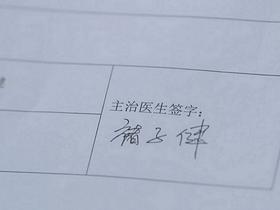 主治医生签字:
褚子健